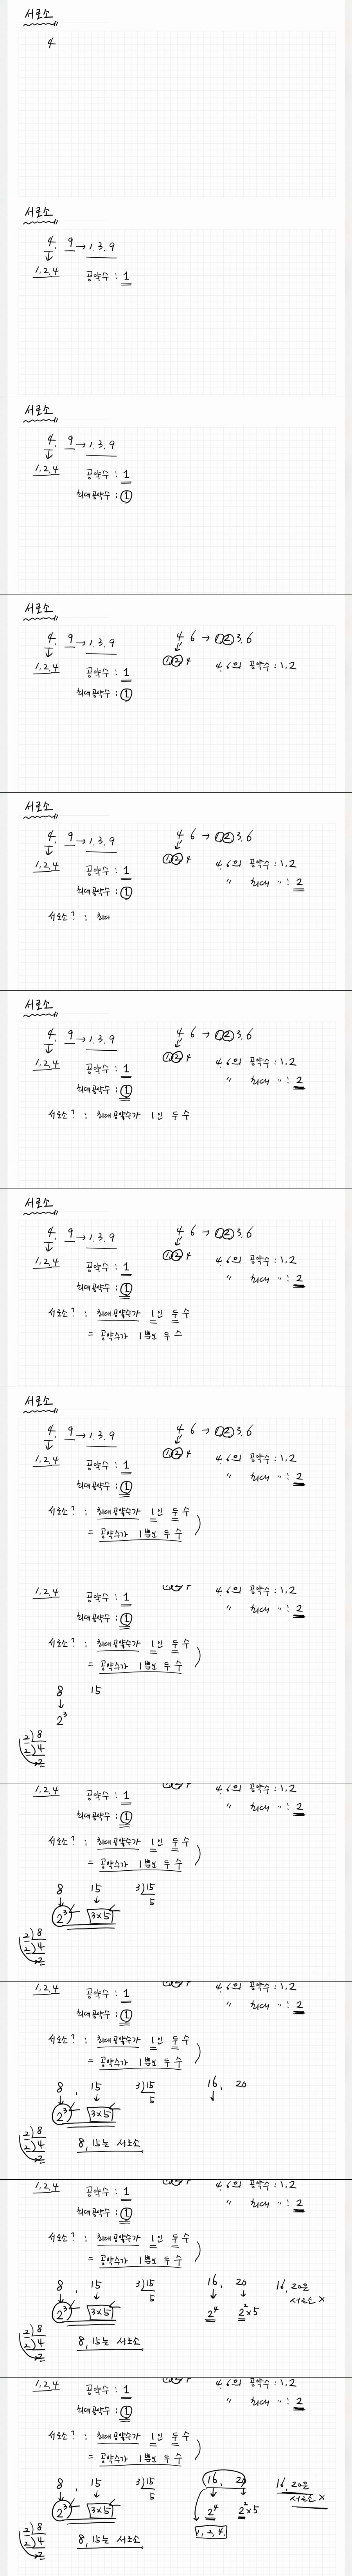 서로소
4
서로소
4, 9 → 1, 3, 9
1, 2, 4 공약수 : 1
서로소
4, 9 → 1, 3, 9
1, 2, 4 공약수 : 1
최대공약수 : 1
서로소
4, 9 → 1, 3, 9 4 6 → 1, 2, 3, 6
1, 2, 4 공약수 : 1 1, 2, 4 4, 6의 공약수 : 1, 2
최대공약수 : 1
서로소
4, 9 → 1, 3, 9 4 6 → 1, 2, 3, 6
1, 2, 4 공약수 : 1 1, 2, 4 4, 6의 공약수 : 1, 2
최대공약수 : 1 " 최대 " : 2
서로소? : 최대
서로소
4, 9 → 1, 3, 9 4 6 → 1, 2, 3, 6
1, 2, 4 공약수 : 1 1, 2, 4 4, 6의 공약수 : 1, 2
최대공약수 : 1 " 최대 " : 2
서로소? : 최대공약수가 1인 두 수
서로소
4, 9 → 1, 3, 9 4 6 → 1, 2, 3, 6
1, 2, 4 공약수 : 1 1, 2, 4 4, 6의 공약수 : 1, 2
최대공약수 : 1 " 최대 " : 2
서로소? : 최대공약수가 1인 두 수
= 공약수가 1뿐인 두 스
서로소
4, 9 → 1, 3, 9 4 6 → 1, 2, 3, 6
1, 2, 4 공약수 : 1 1, 2, 4 4, 6의 공약수 : 1, 2
최대공약수 : 1 " 최대 " : 2
서로소? : 최대공약수가 1인 두 수
= 공약수가 1뿐인 두 수
1, 2, 4 공약수 : 1 4, 6의 공약수 : 1, 2
최대공약수 : 1 " 최대 " : 2
서로소? : 최대공약수가 1인 두 수
= 공약수가 1뿐인 두 수
8 15
↓
2³
2)8
2)4
2
1, 2, 4 공약수 : 1 4, 6의 공약수 : 1, 2
최대공약수 : 1 " 최대 " : 2
서로소? : 최대공약수가 1인 두 수
= 공약수가 1뿐인 두 수
8 15 3)15
↓ ↓ 5
2³ 3×5
2)8
2)4
2
1, 2, 4 공약수 : 1 4, 6의 공약수 : 1, 2
최대공약수 : 1 " 최대 " : 2
서로소? : 최대공약수가 1인 두 수
= 공약수가 1뿐인 두 수
8, 15 3)15 16, 20
↓ ↓ 5 ↓
2³ 3×5
2)8
2)4 8, 15는 서로소
2
1, 2, 4 공약수 : 1 4, 6의 공약수 : 1, 2
최대공약수 : 1 " 최대 " : 2
서로소? : 최대공약수가 1인 두 수
= 공약수가 1뿐인 두 수
8, 15 3)15 16, 20 16, 20은
↓ ↓ 5 ↓ ↓ 서로소 X
2³ 3×5 2⁴ 2²×5
2)8
2)4 8, 15는 서로소
2
1, 2, 4 공약수 : 1 4, 6의 공약수 : 1, 2
최대공약수 : 1 " 최대 " : 2
서로소? : 최대공약수가 1인 두 수
= 공약수가 1뿐인 두 수
8, 15 3)15 16, 20 16, 20은
↓ ↓ 5 ↓ ↓ 서로소 X
2³ 3×5 2⁴ 2²×5
2)8 1, 2, 4
2)4 8, 15는 서로소
2